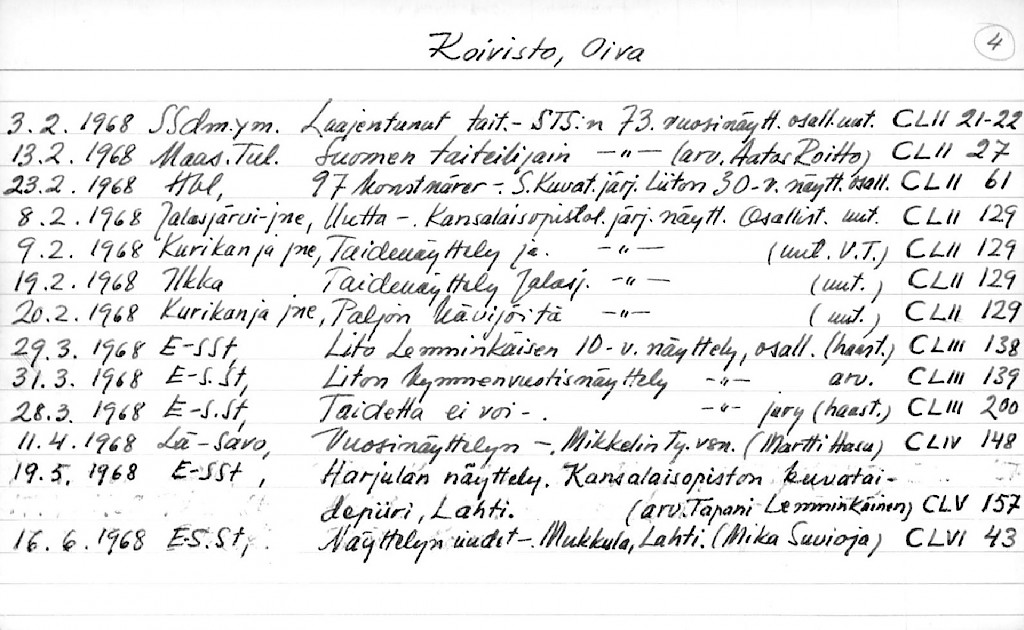 Koivisto, Oiva 4
3.2.1968 SSdm.ym. Laajentunut tait.- STS:n 73. vuosinäytt. osall.uut. CLII 21-22
13.2.1968 Maas.Tul. Suomen taiteilijain —"— (arv. Aatas Roitto) CLII 27
23.2.1968 Hbl, 97 konstnärer -. S.Kuvat.järj. Liiton 30-v. näytt. osall. CLII 61
8.2.1968 Jalasjärvi-jne, Uutta -. Kansalaisopistol. järj. näytt. Osallist. uut. CLII 129
9.2.1968 Kurikan ja jne, Taidenäyttely ja. —"— (uut. V.T.) CLII 129
19.2.1968 Ilkka Taidenäyttely Jalasj. —"— (uut.) CLII 129
20.2.1968 Kurikanja jne, Paljon kävijöitä —"— (uut.) CLII 129
29.3.1968 E-SSt, Lito Lemminkäisen 10-v. näyttely, osall. (haast.) CLIII 138
31.3.1968 E-S.St, Liton kymmenvuotisnäyttely —"— arv. CLIII 139
28.3.1968 E-S.St, Taidetta ei voi -. —"— jury (haast.) CLIII 200
11.4.1968 Lä-Savo, Vuosinäyttelyn -. Mikkelin Ty. vsn. (Martti Hasu) CLIV 148
19.5.1968 E-SSt, Harjulan näyttely. Kansalaisopiston kuvatai-
depiiri, Lahti. (arv. Tapani Lemminkäinen) CLV 157
16.6.1968 E-S.St, Näyttelyn uudet -. Mukkula, Lahti. (Mika Suvioja) CLVI 43